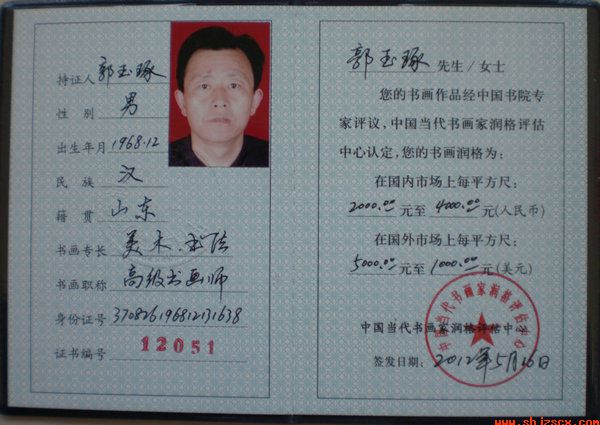 持证人 郭玉琢
性 别 男
出生年月 1968.12
民 族 汉
籍 贯 山东
书画专长 美术.书法
书画职称 高级书画师
身份证号 370826196812131638
证书编号 12051
郭玉琢 先生/女士
您的书画作品经中国书院专
家评议,中国当代书画家润格评估
中心认定,您的书画润格为:
在国内市场上每平方尺:
2000.00 元至 4000.00 元(人民币)
在国外市场上每平方尺:
5000.00 元至 1000.00 元(美元)
中国当代书画家润格评估中心
中国当代书画家润格评估中心
签发日期: 2012年5月16日
www.shjzscx.com